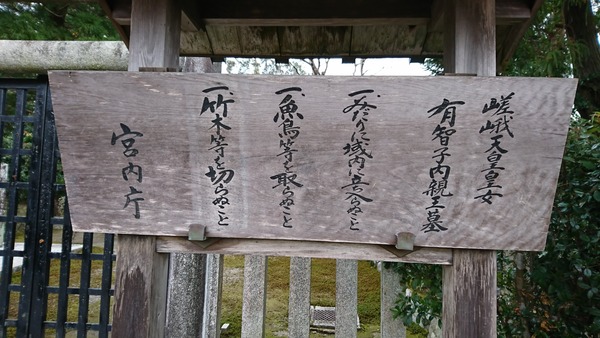 嵯峨天皇皇女
有智子内親王墓
一、みだりに域内に立入らぬこと
一、魚鳥等を取らぬこと
一、竹木等を切らぬこと
宮内庁